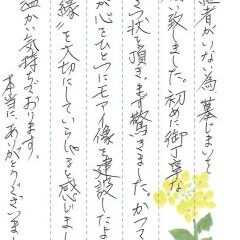 継者がいない為、墓じまいを
い致しました。初めに御丁寧な
状を頂き、まず驚きました。かつて
が心をひとつにモアイ像を建設したよ
縁”を大切にしていらっしゃると感じまし
温かい気持ちでおります。
本当にありがとうございまし